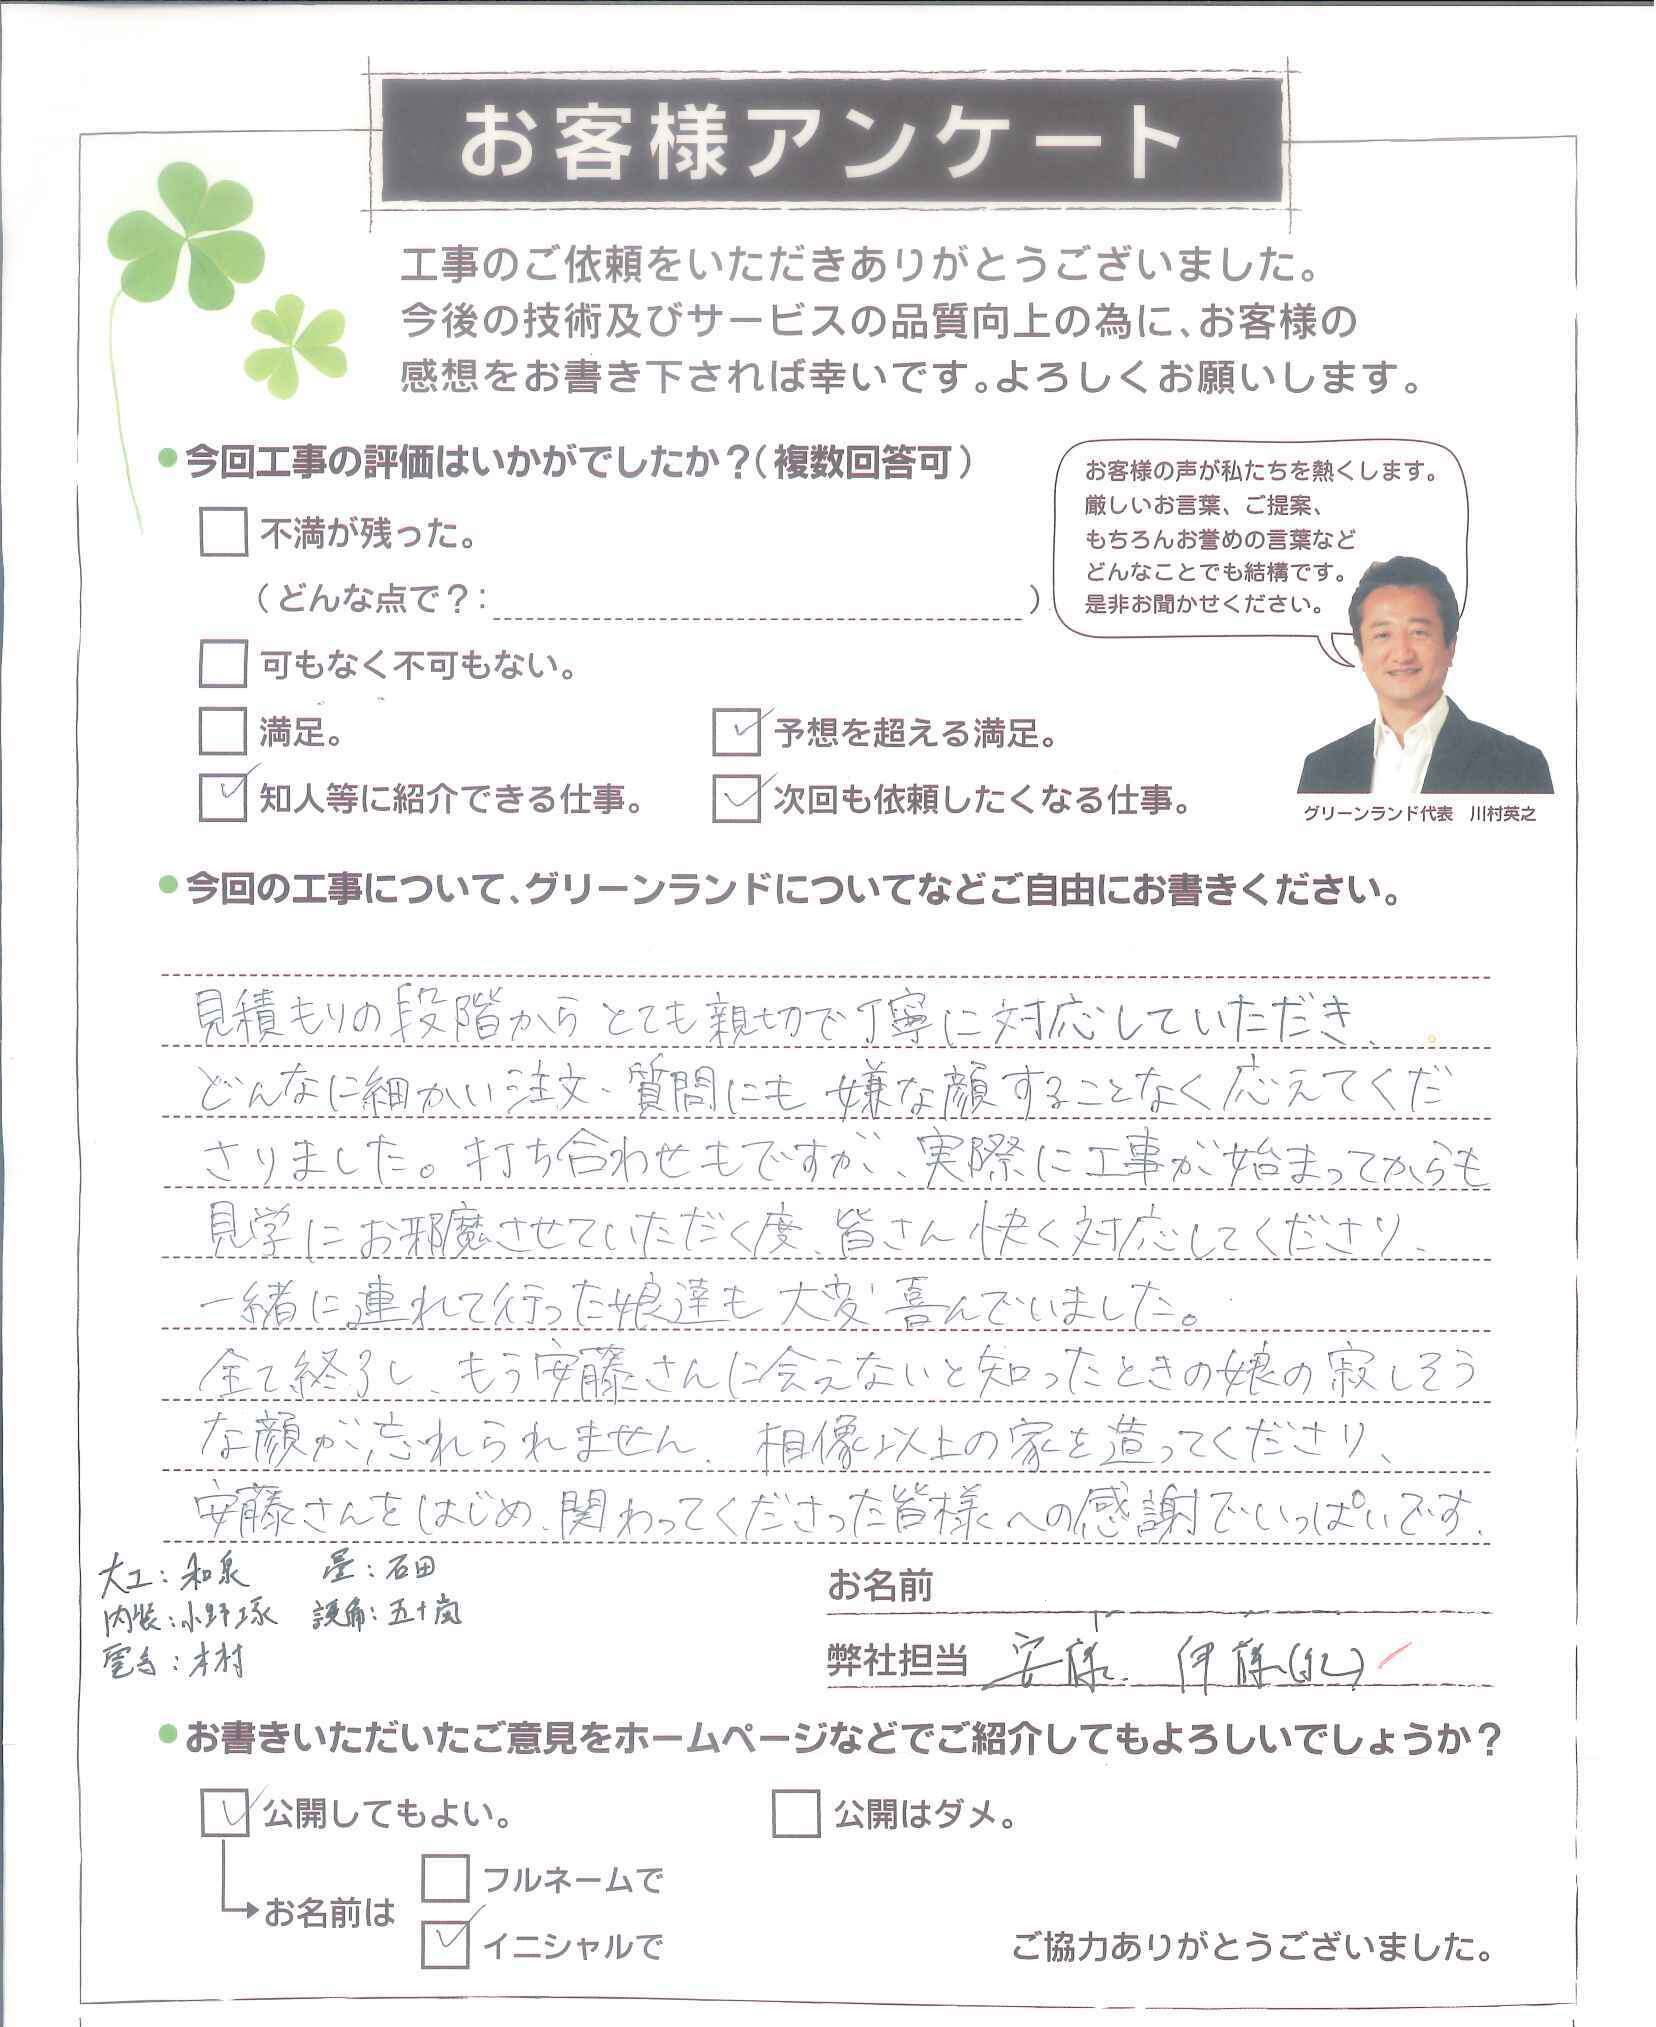 お客様アンケート
工事のご依頼をいただきありがとうございました。
今後の技術及びサービスの品質向上の為に、お客様の
感想をお書き下されば幸いです。よろしくお願いします。
今回工事の評価はいかがでしたか？（複数回答可）
不満が残った。
（どんな点で？：　　　）
可もなく不可もない。
満足。
予想を超える満足。
知人等に紹介できる仕事。
次回も依頼したくなる仕事。
お客様の声が私たちを熱くします。
厳しいお言葉、ご提案、
もちろんお誉めの言葉など
どんなことでも結構です。
是非お聞かせください。
グリーンランド代表　川村英之
今回の工事について、グリーンランドについてなどご自由にお書きください。
見積もりの段階から とても親切で丁寧に対応していただき、
どんなに細かい注文・質問にも 嫌な顔することなく応えてくだ
さりました。打ち合わせもですが、実際に工事が始まってからも
見学にお邪魔させていただく度、皆さん快く対応してくださり、
一緒に連れて行った娘達も大変喜んでいました。
全て終了し、もう安藤さんに会えないと知ったときの娘の寂しそう
な顔が忘れられません。相像以上の家を造ってくださり、
安藤さんをはじめ、関わってくださった皆様への感謝でいっぱいです。
大工：和泉　畳：石田
内装：小野塚　設備：五十嵐
電気：木村
お名前
弊社担当 安藤 伊藤
お書きいただいたご意見をホームページなどでご紹介してもよろしいでしょうか？
公開してもよい。
公開はダメ。
お名前は
フルネームで
イニシャルで
ご協力ありがとうございました。